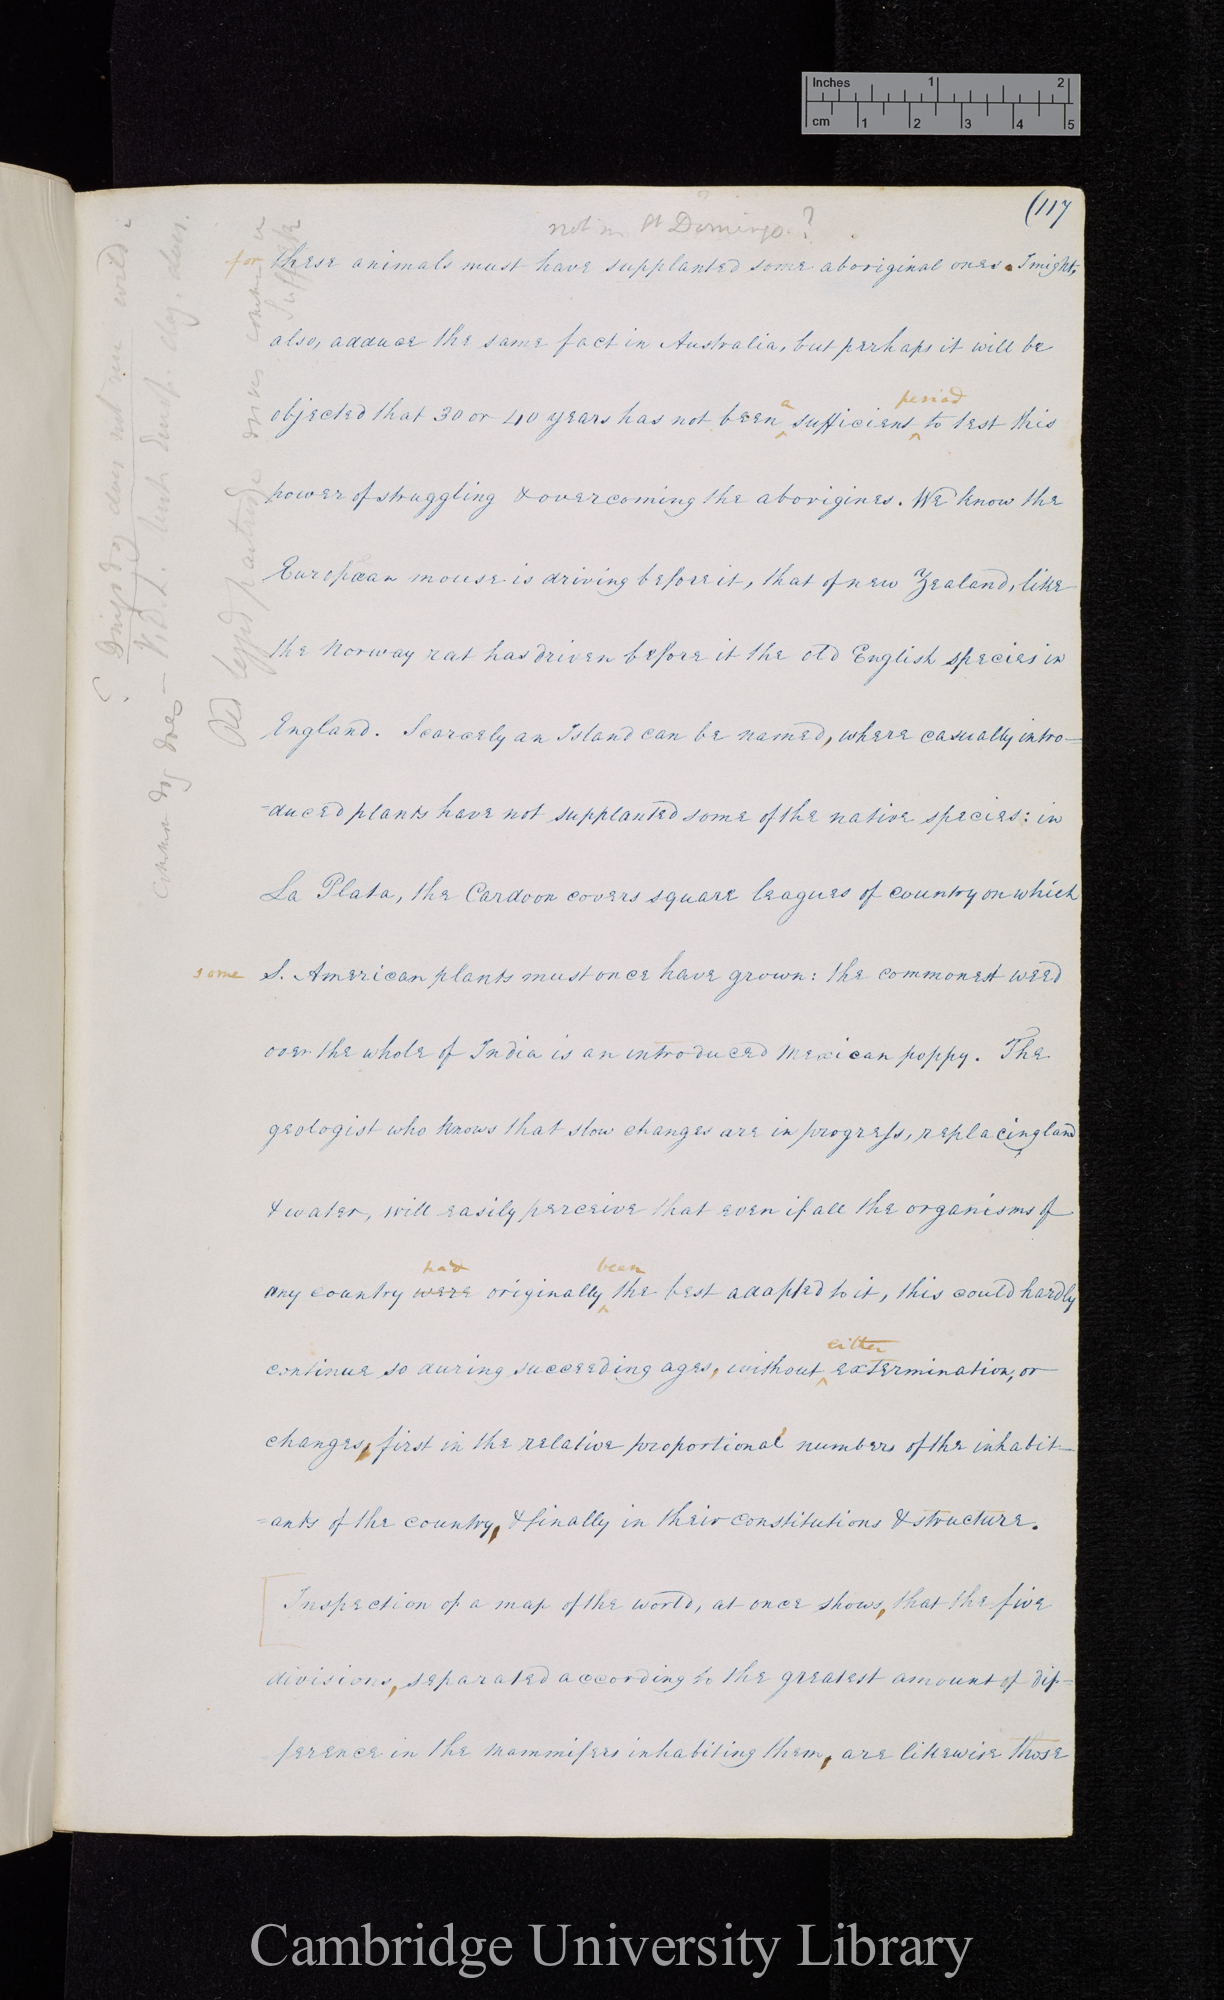 Inches 1 2
cm 1 2 3 4 5
(117
not in St Domingo?
for these animals must have supplanted some aboriginal ones. I might,
also, adduce the same fact in Australia, but perhaps it will be
objected that 30 or 40 years has not been a sufficient period to test this
power of struggling & overcoming the aborigines. We know the
European mouse is driving before it, that of new Zealand, like
the Norway rat has driven before it the old English species in
England. Scarcely an Island can be named, where casually intro-
-duced plants have not supplanted some of the native species: in
La Plata, the Cardoon covers square leagues of country on which
some S. American plants must once have grown: the commonest weed
over the whole of India is an introduced Mexican poppy. The
geologist who knows that slow changes are in progress, replacing land
& water, will easily perceive that even if all the organisms of
any country were had originally been the best adapted to it, this could hardly
continue so during succeeding ages, without either extermination, or
changes, first in the relative proportional numbers of the inhabit-
-ants of the country, & finally in their constitutions & structure.
Inspection of a map of the world, at once shows, that the five
divisions, separated according to the greatest amount of dif-
ference in the mammifers inhabiting them, are likewise those
Dingo dog does not run wild
V.D.L. does.
common dog does —
Red legged partridge drives common in Suffolk
Cambridge University Library